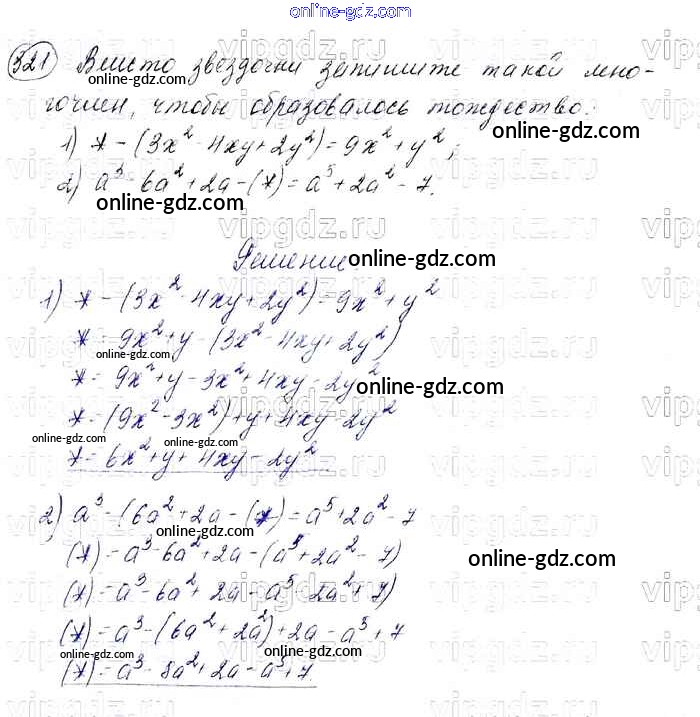 online-gdz.com
321 Вместо звездочки запишите такой мно-
online-gdz.com
гочлен, чтобы образовалось тождество:
1) * - (3x² - 4xy + 2y²) = 9x² + y²;
online-gdz.com
2) a³ - 6a² + 2a - (*) = a⁵ + 2a² - 7.
online-gdz.com
Решение
online-gdz.com
1) * - (3x² - 4xy + 2y²) = 9x² + y²
* = 9x² + y - (3x² - 4xy + 2y²)
online-gdz.com
* = 9x² + y - 3x² + 4xy - 2y²
online-gdz.com
* = (9x² - 3x²) + y + 4xy - 2y²
online-gdz.com
online-gdz.com
* = 6x² + y + 4xy - 2y²
2) a³ - (6a² + 2a - (*) = a⁵ + 2a² - 7
online-gdz.com
(*) = a³ - 6a² + 2a - (a⁵ + 2a² - 7)
online-gdz.com
(*) = a³ - 6a² + 2a - a⁵ - 2a² + 7)
(*) = a³ - (6a² + 2a²) + 2a - a⁵ + 7
online-gdz.com
(*) = a³ - 8a² + 2a - a⁵ + 7.
vipgdz.ru